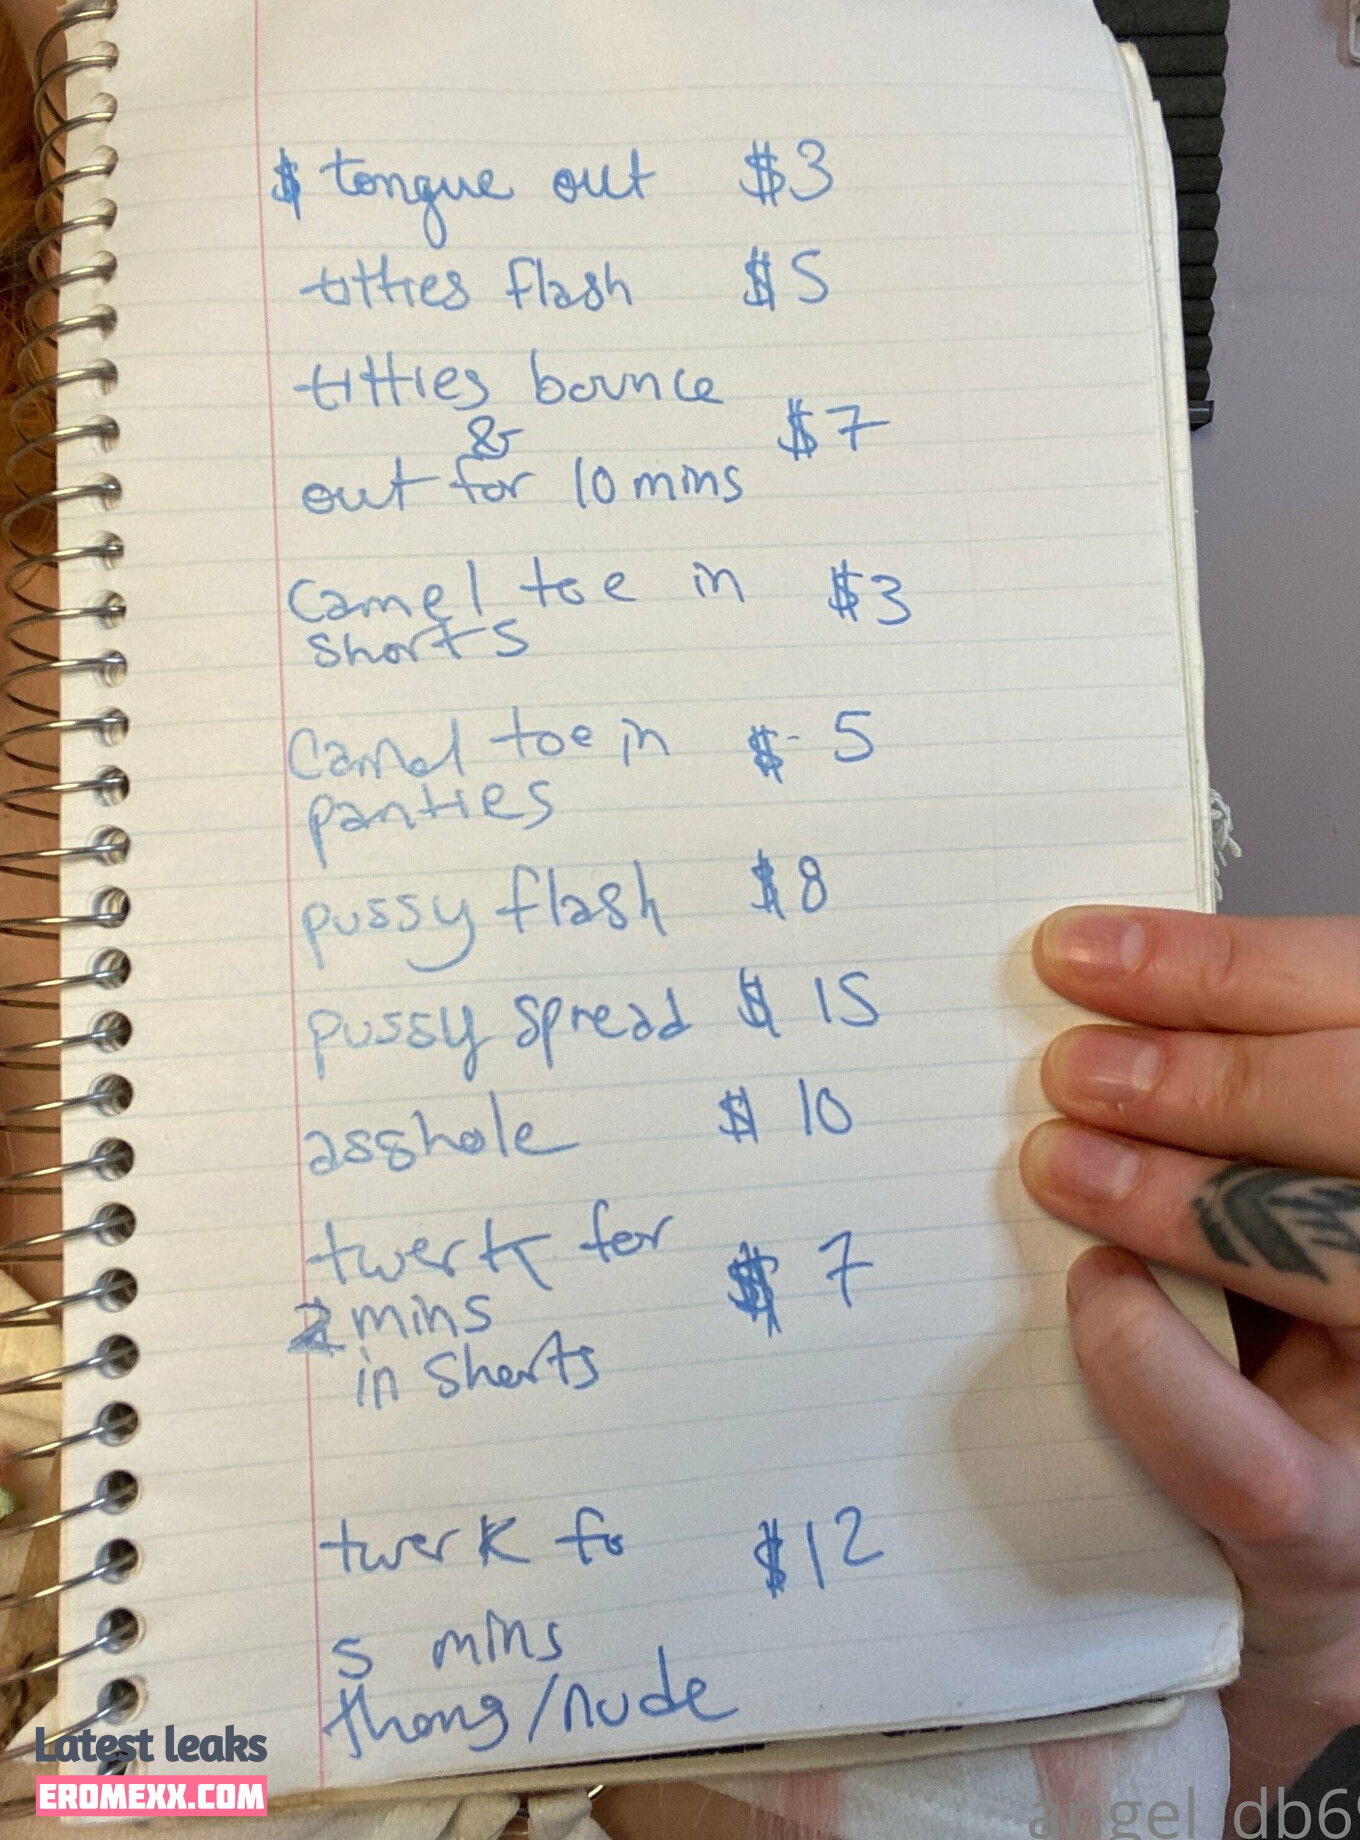 $ tongue out $3
titties flash $5
titties bounce
&
$7
out for 10 mins
Camel toe in $3
shorts
Camel toe in $ 5
panties
pussy flash $8
pussy spread $ 15
asshole $ 10
twerk for
$ 7
2 mins
in shorts
twerk fo $12
5 mins
thong/nude
Latest leaks
EROMEXX.COM
angel_db6